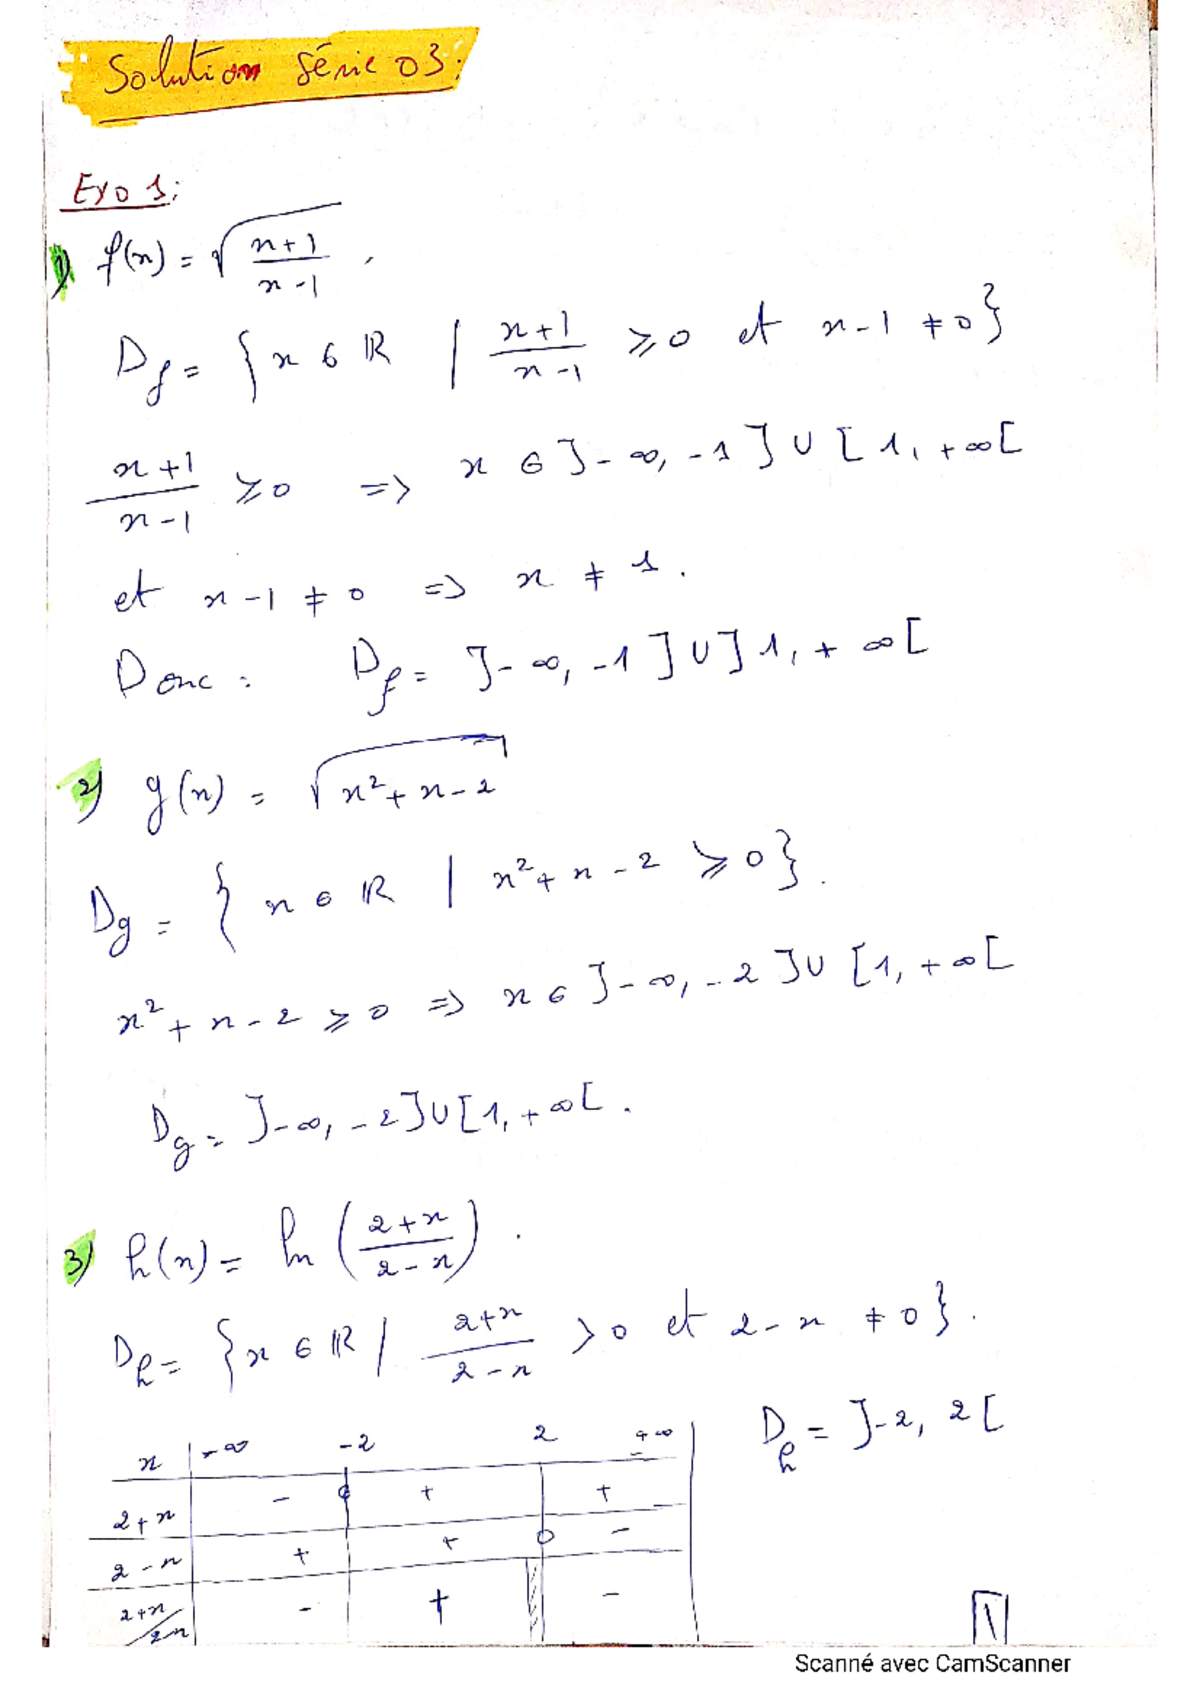 Solution série 03:
Exo 1:
1) f(x) = √((x+1)/(x-1)) .
Df = { x ∈ ℝ | (x+1)/(x-1) ⩾ 0 et x-1 ≠ 0 }
(x+1)/(x-1) ⩾ 0 => x ∈ ]-∞, -1] ∪ [1, +∞[
et x-1 ≠ 0 => x ≠ 1.
Donc : Df = ]-∞, -1] ∪ ]1, +∞[
2) g(x) = √(x²+x-2)
Dg = { x ∈ ℝ | x²+x-2 ⩾ 0 }.
x²+x-2 ⩾ 0 => x ∈ ]-∞, -2] ∪ [1, +∞[
Dg = ]-∞, -2] ∪ [1, +∞[ .
3) h(x) = ln ((2+x)/(2-x)) .
Dh = { x ∈ ℝ | (2+x)/(2-x) > 0 et 2-x ≠ 0 }.
Dh = ]-2, 2[
x -∞ -2 2 +∞
2+x - 0 + +
2-x + + 0 -
2+x/2-x - + -
1
Scanné avec CamScanner